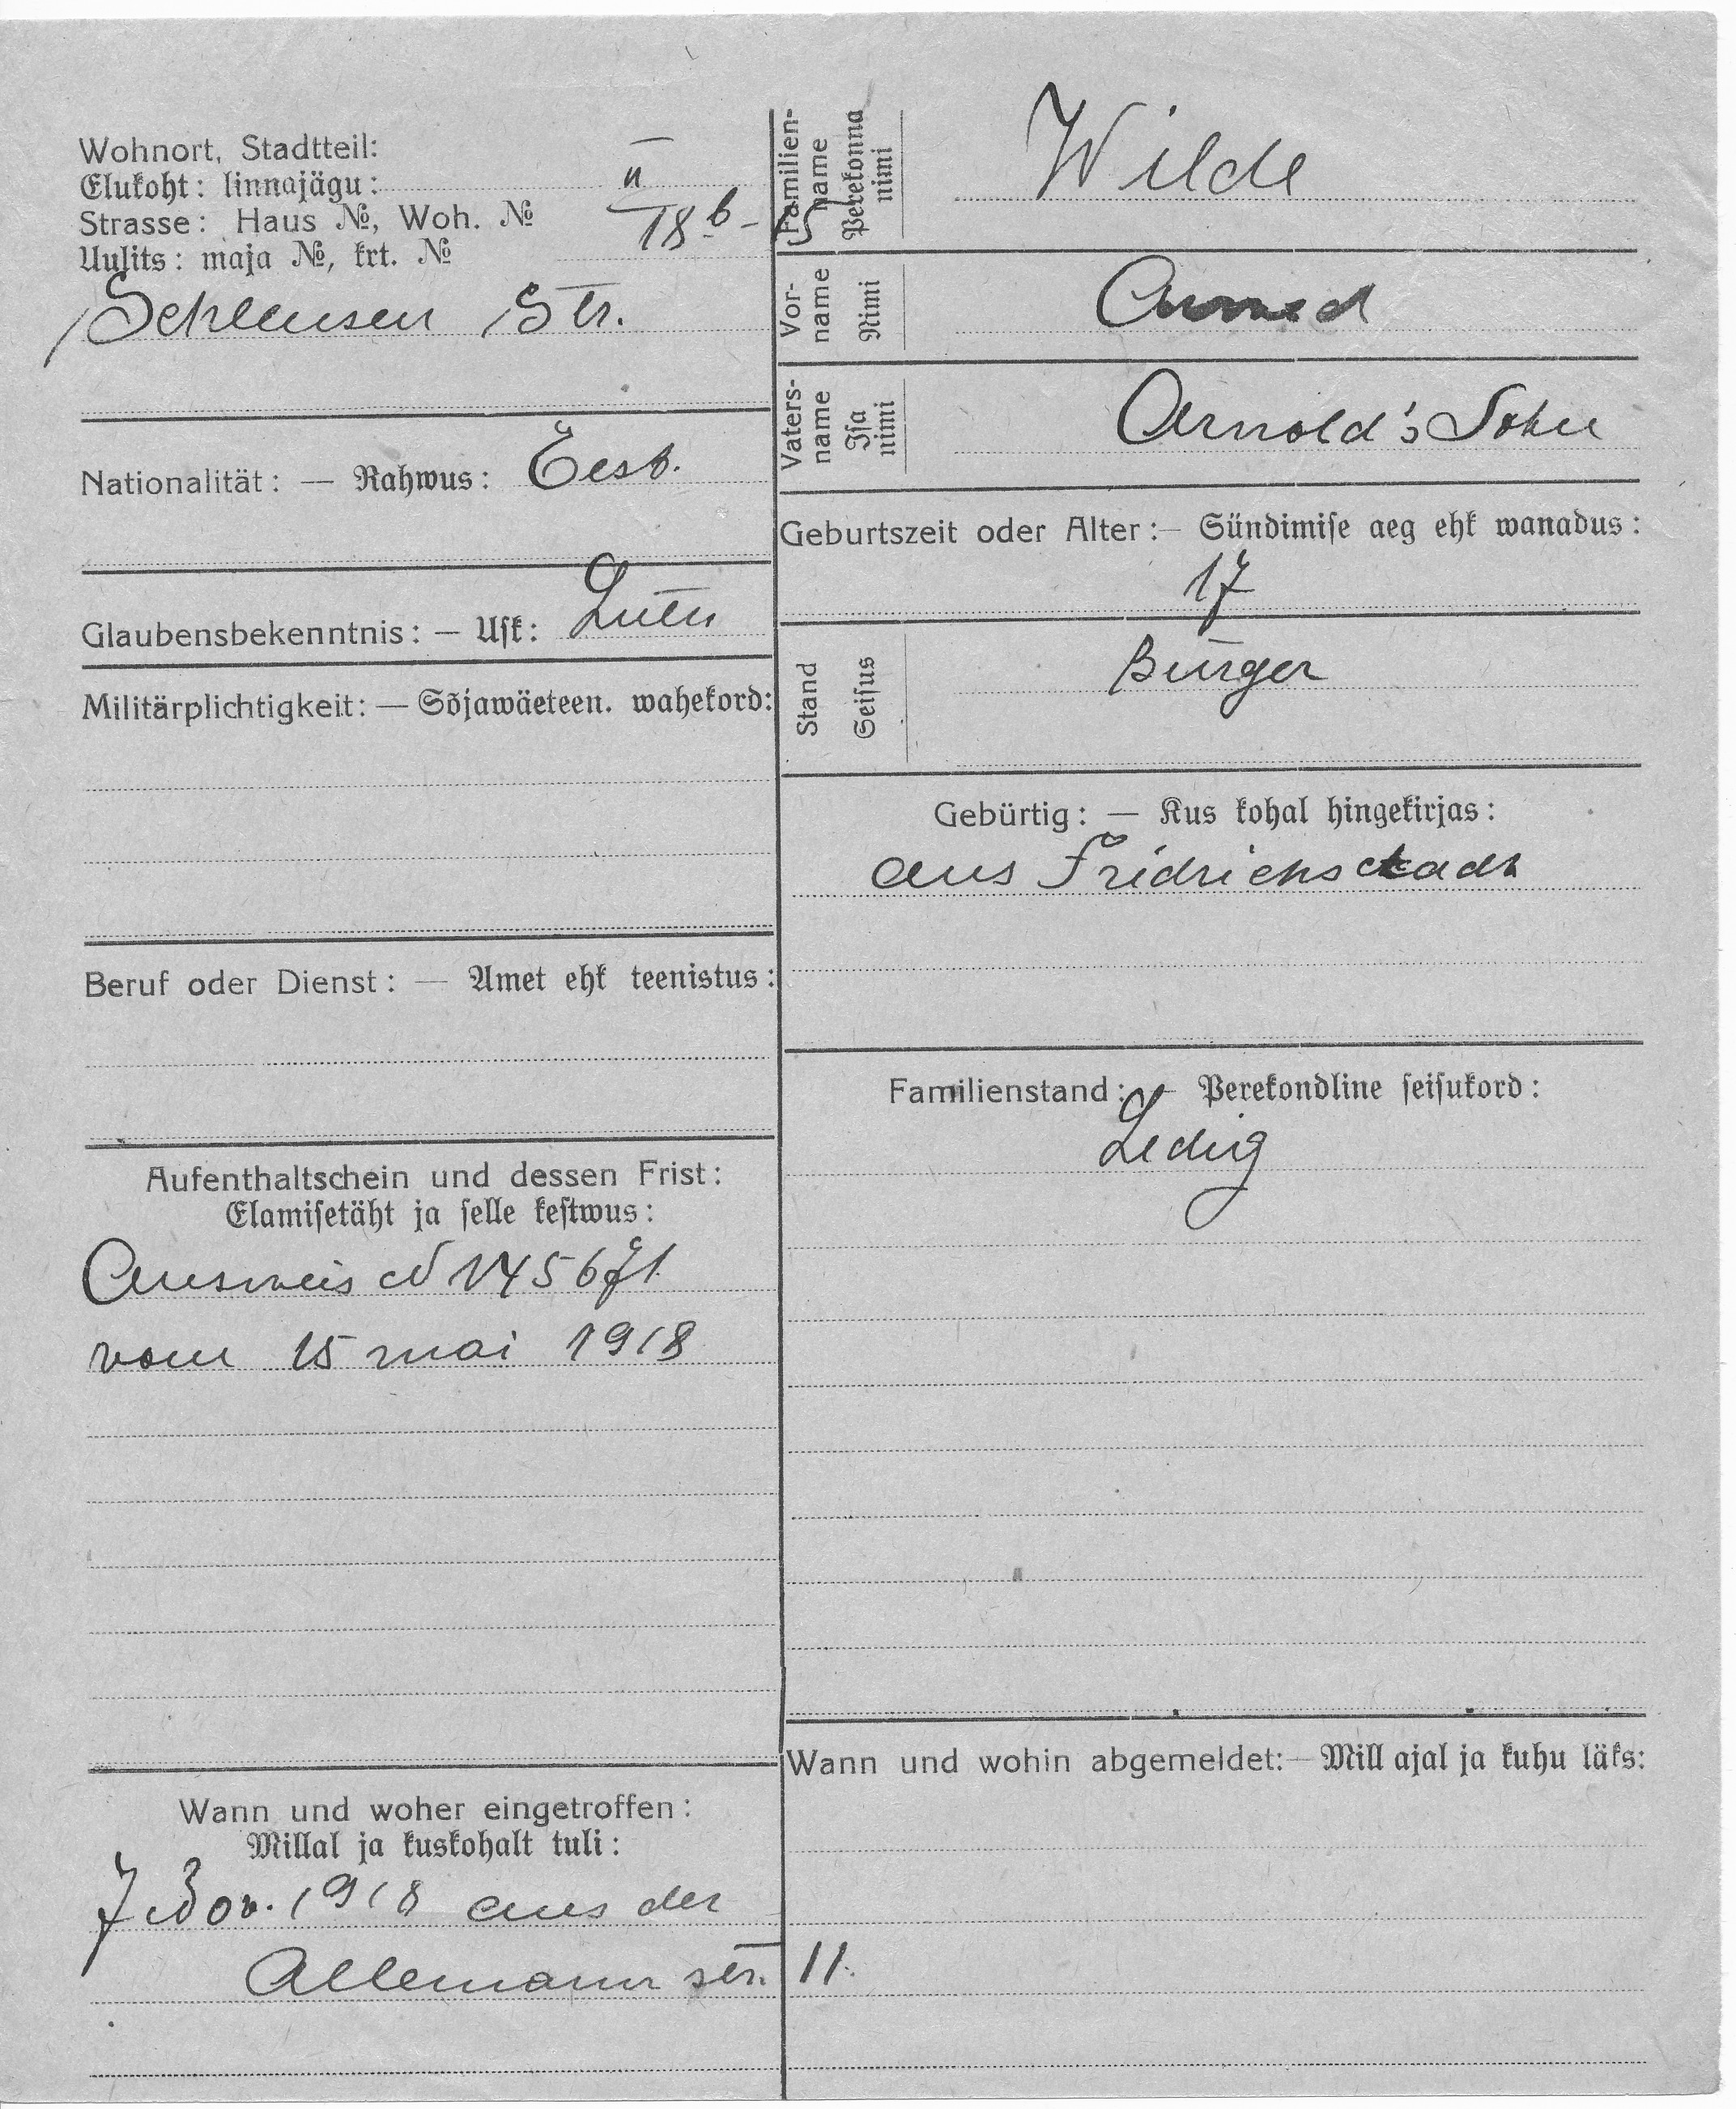 Wohnort, Stadtteil:
Elukoht: linnajägu: II
Strasse: Haus №, Woh. № 18 b - 5
Uulits: maja №, krt. №
Schleusen Str.
Nationalität: — Rahwus: Eest.
Glaubensbekenntnis: — Usk: Luth
Militärplichtigkeit: — Sõjawäeteen. wahekord:
Beruf oder Dienst: — Amet ehk teenistus:
Aufenthaltschein und dessen Frist:
Elamisetäht ja selle kestwus:
Ausweis N 145671
vom 15 mai 1918
Wann und woher eingetroffen:
Millal ja kuskohalt tuli:
7 Nov. 1918 aus der
Allemann str. 11.
Familien-
name
Perekonna
nimi
Wilde
Vor-
name
Nimi
Vaters-
name
Isa
nimi
Arnold's Sohn
Geburtszeit oder Alter: — Sündimise aeg ehk wanadus:
17
Stand
Seisus
Bürger
Gebürtig: — Kus kohal hingekirjas:
aus Fridrichstadt
Familienstand: — Perekondline seisukord:
Ledig
Wann und wohin abgemeldet: — Mill ajal ja kuhu läks: